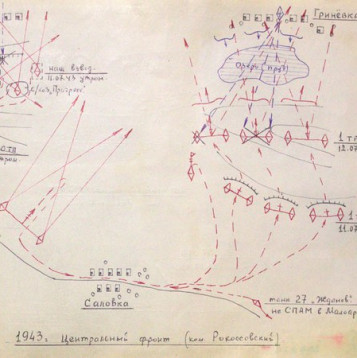 Гринёвка
наш взвод
11.07.43 утром
с/хоз. "Прогресс"
Озеро (пруд)
1 т
12.07
1
11.07
Саловка
танк 27 "Жданов"
на СПАМ в Малоар
1943г. Центральный фронт (ком. Рокоссовский)